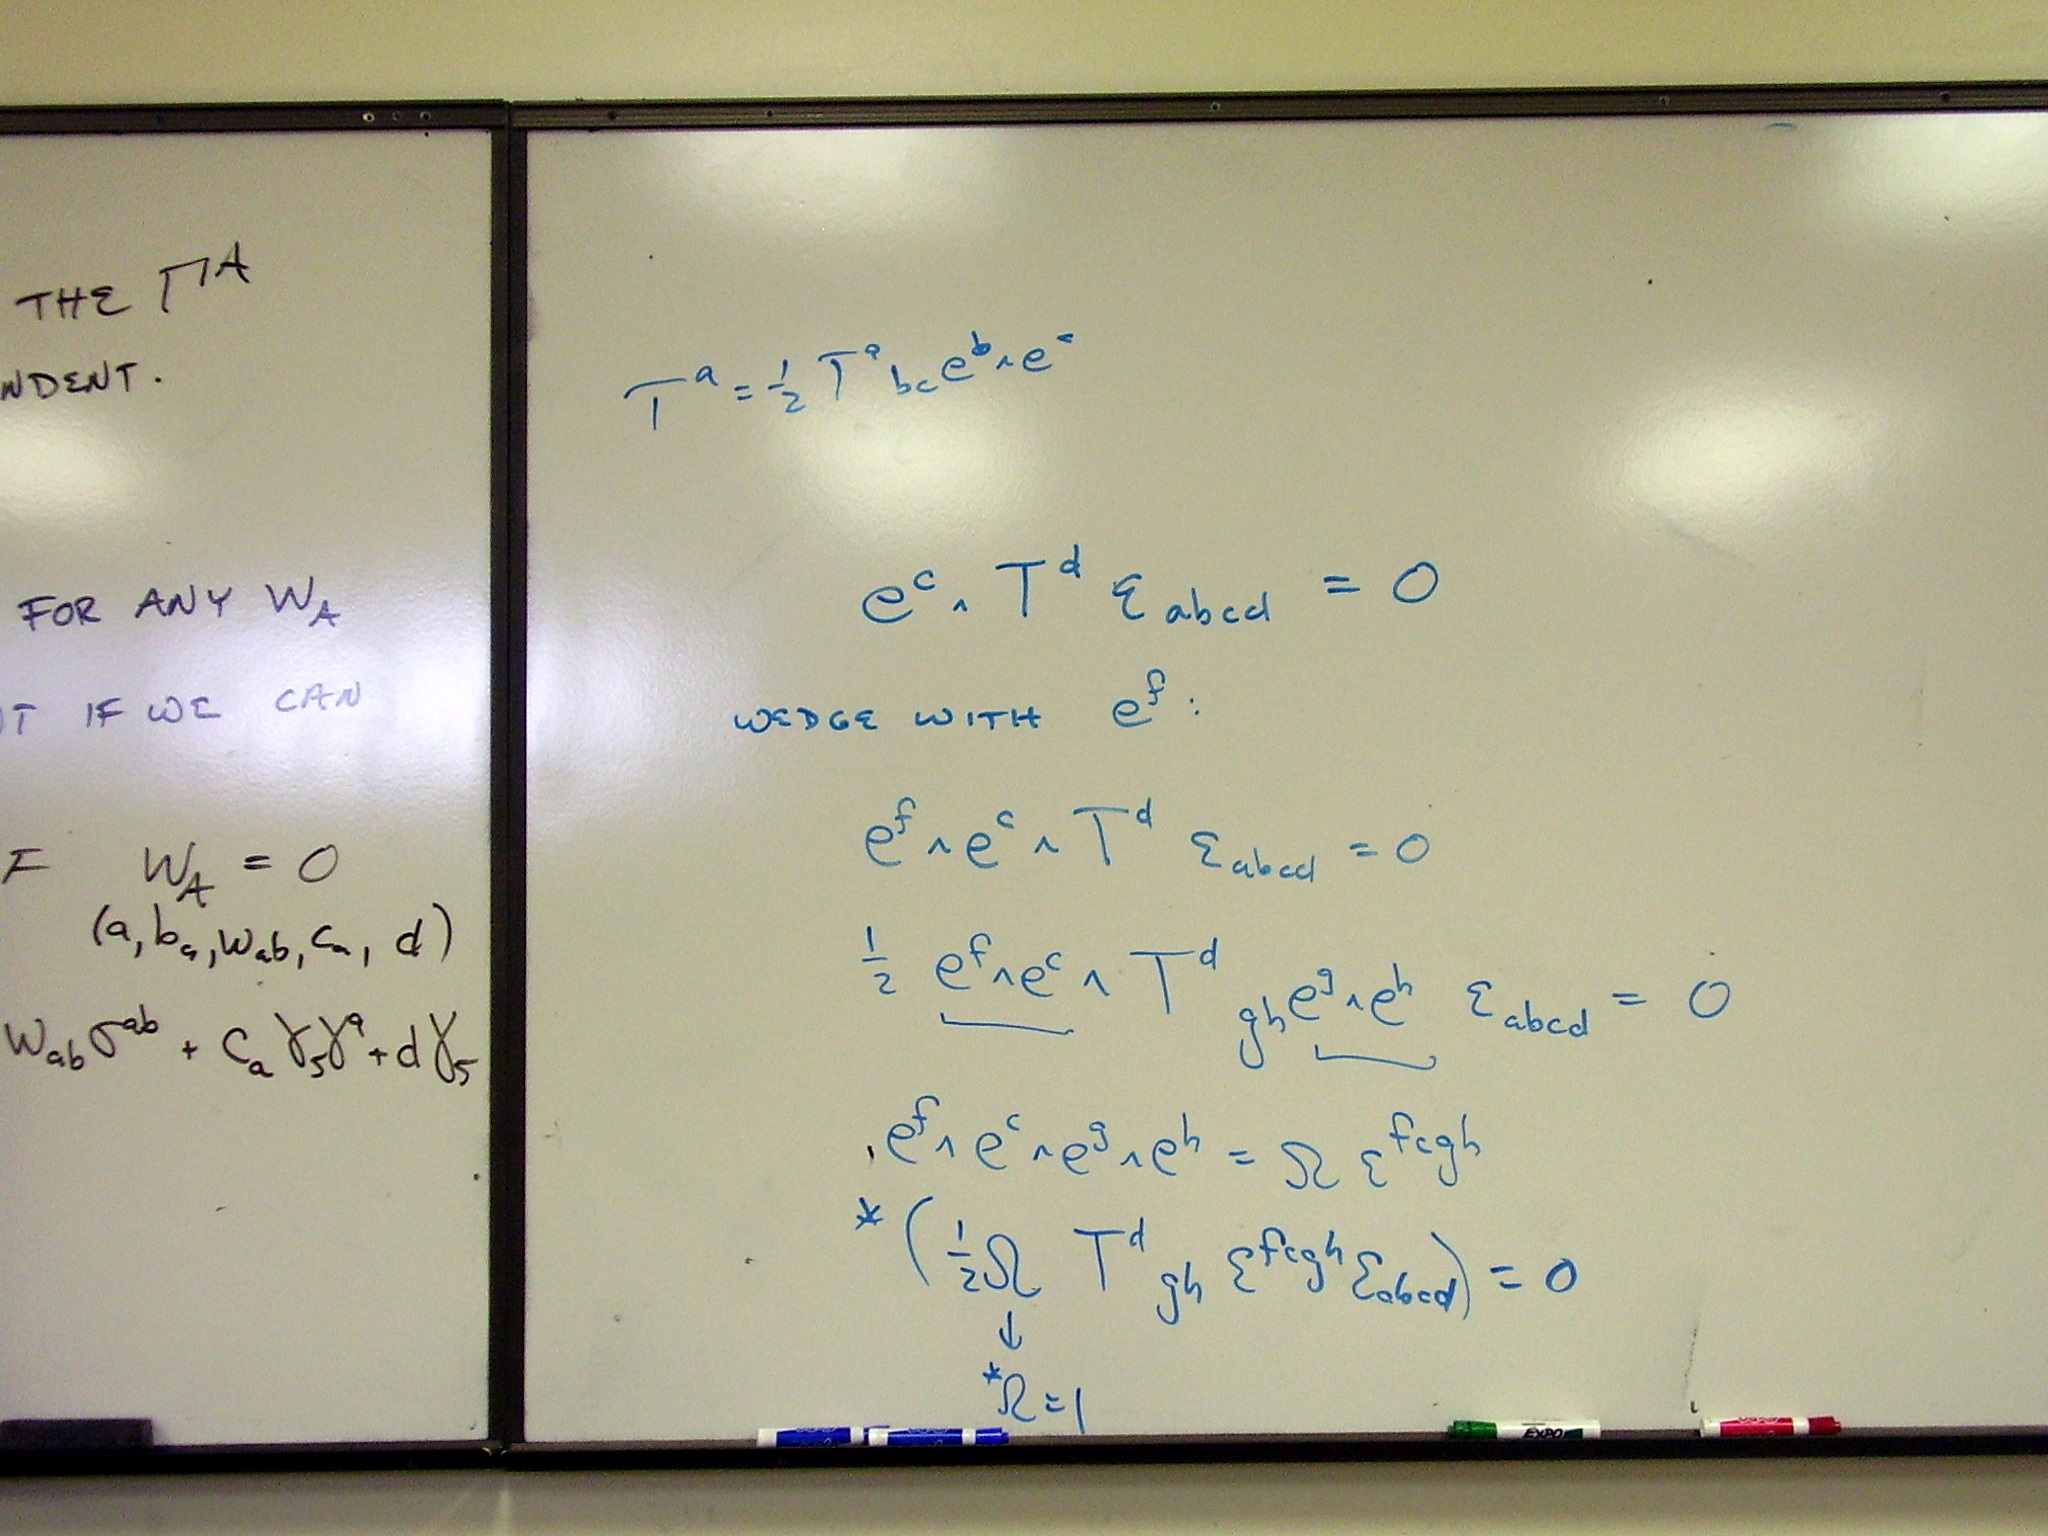 THE Γᴬ
NDENT.
FOR ANY W_A
T IF WE CAN
F W_A = 0
(a, b_a, w_ab, c_a, d)
W_ab σ^ab + c_a γ_5 γ^a + d γ_5
T^a = 1/2 T^a_bc e^b ∧ e^c
e^c ∧ T^d ε_abcd = 0
WEDGE WITH e^f :
e^f ∧ e^c ∧ T^d ε_abcd = 0
1/2 e^f ∧ e^c ∧ T^d_gh e^g ∧ e^h ε_abcd = 0
e^f ∧ e^c ∧ e^g ∧ e^h = Ω ε^fcgh
* ( 1/2 Ω T^d_gh ε^fcgh ε_abcd ) = 0
↓
*Ω = 1
EXPO